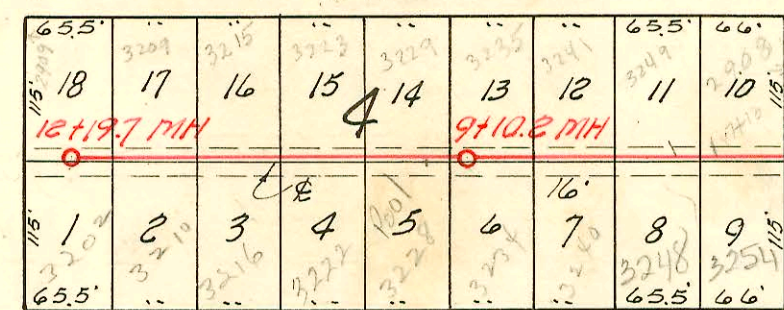 65.5' .. .. .. .. .. .. 65.5' 66'
3209 3215 3223 3229 3235 3241 3249 2908
2909
115' 18 17 16 15 14 13 12 11 10 115'
4
12+19.7 MH 9+10.2 MH
℄ 16'
115' 1 2 3 4 5 6 7 8 9 115'
Pool
3202 3210 3216 3222 3228 3234 3240 3248 3254
65.5' .. .. .. .. .. .. 65.5' 66'